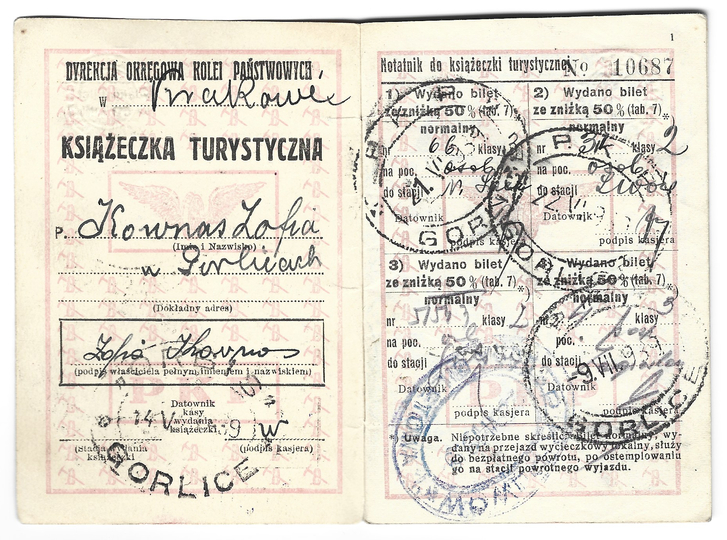 DYREKCJA OKRĘGOWA KOLEI PAŃSTWOWYCH
w Krakowie
KSIĄŻECZKA TURYSTYCZNA
P. Kownas Zofia
(Imię i Nazwisko)
w Gorlicach
(Dokładny adres)
Zofia Kownas
(podpis właściciela pełnym imieniem i nazwiskiem)
Datownik
kasy
wydania
książeczki
14 V
9
(Stacja wydania
książeczki)
(podpis kasjera)
GORLICE
1
Notatnik do książeczki turystycznej
No 10687
1) Wydano bilet
ze zniżką 50% (tab. 7)
normalny
nr 66 klasy 3
na poc. osob
do stacji
Datownik
podpis kasjera
GORLICE
2) Wydano bilet
ze zniżką 50% (tab. 7)
normalny
nr klasy 2
na poc.
do stacji
Datownik
podpis kasjera
GORLICE
3) Wydano bilet
ze zniżką 50% (tab. 7)
normalny
nr klasy 2
na poc.
do stacji
Datownik
podpis kasjera
4) Wydano bilet
ze zniżką 50% (tab. 7)
normalny
nr klasy 3
na poc.
do stacji
Datownik
9 VII 93
podpis kasjera
GORLICE
* Uwaga. Niepotrzebne skreślić. Bilet normalny, wy-
dany na przejazd wycieczkowy lokalny, służy
do bezpłatnego powrotu, po ostemplowaniu
go na stacji powrotnego wyjazdu.